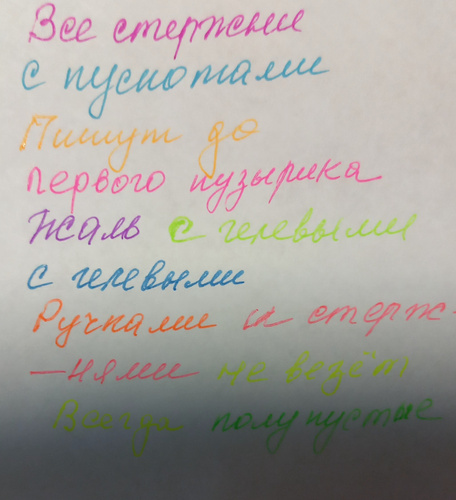 Все стержни
с пускотами
Пишут до
первого пузырика
Жаль с гелевыми
с гелевыми
Ручками и стерж-
-нями не везёт
Всегда полупустые